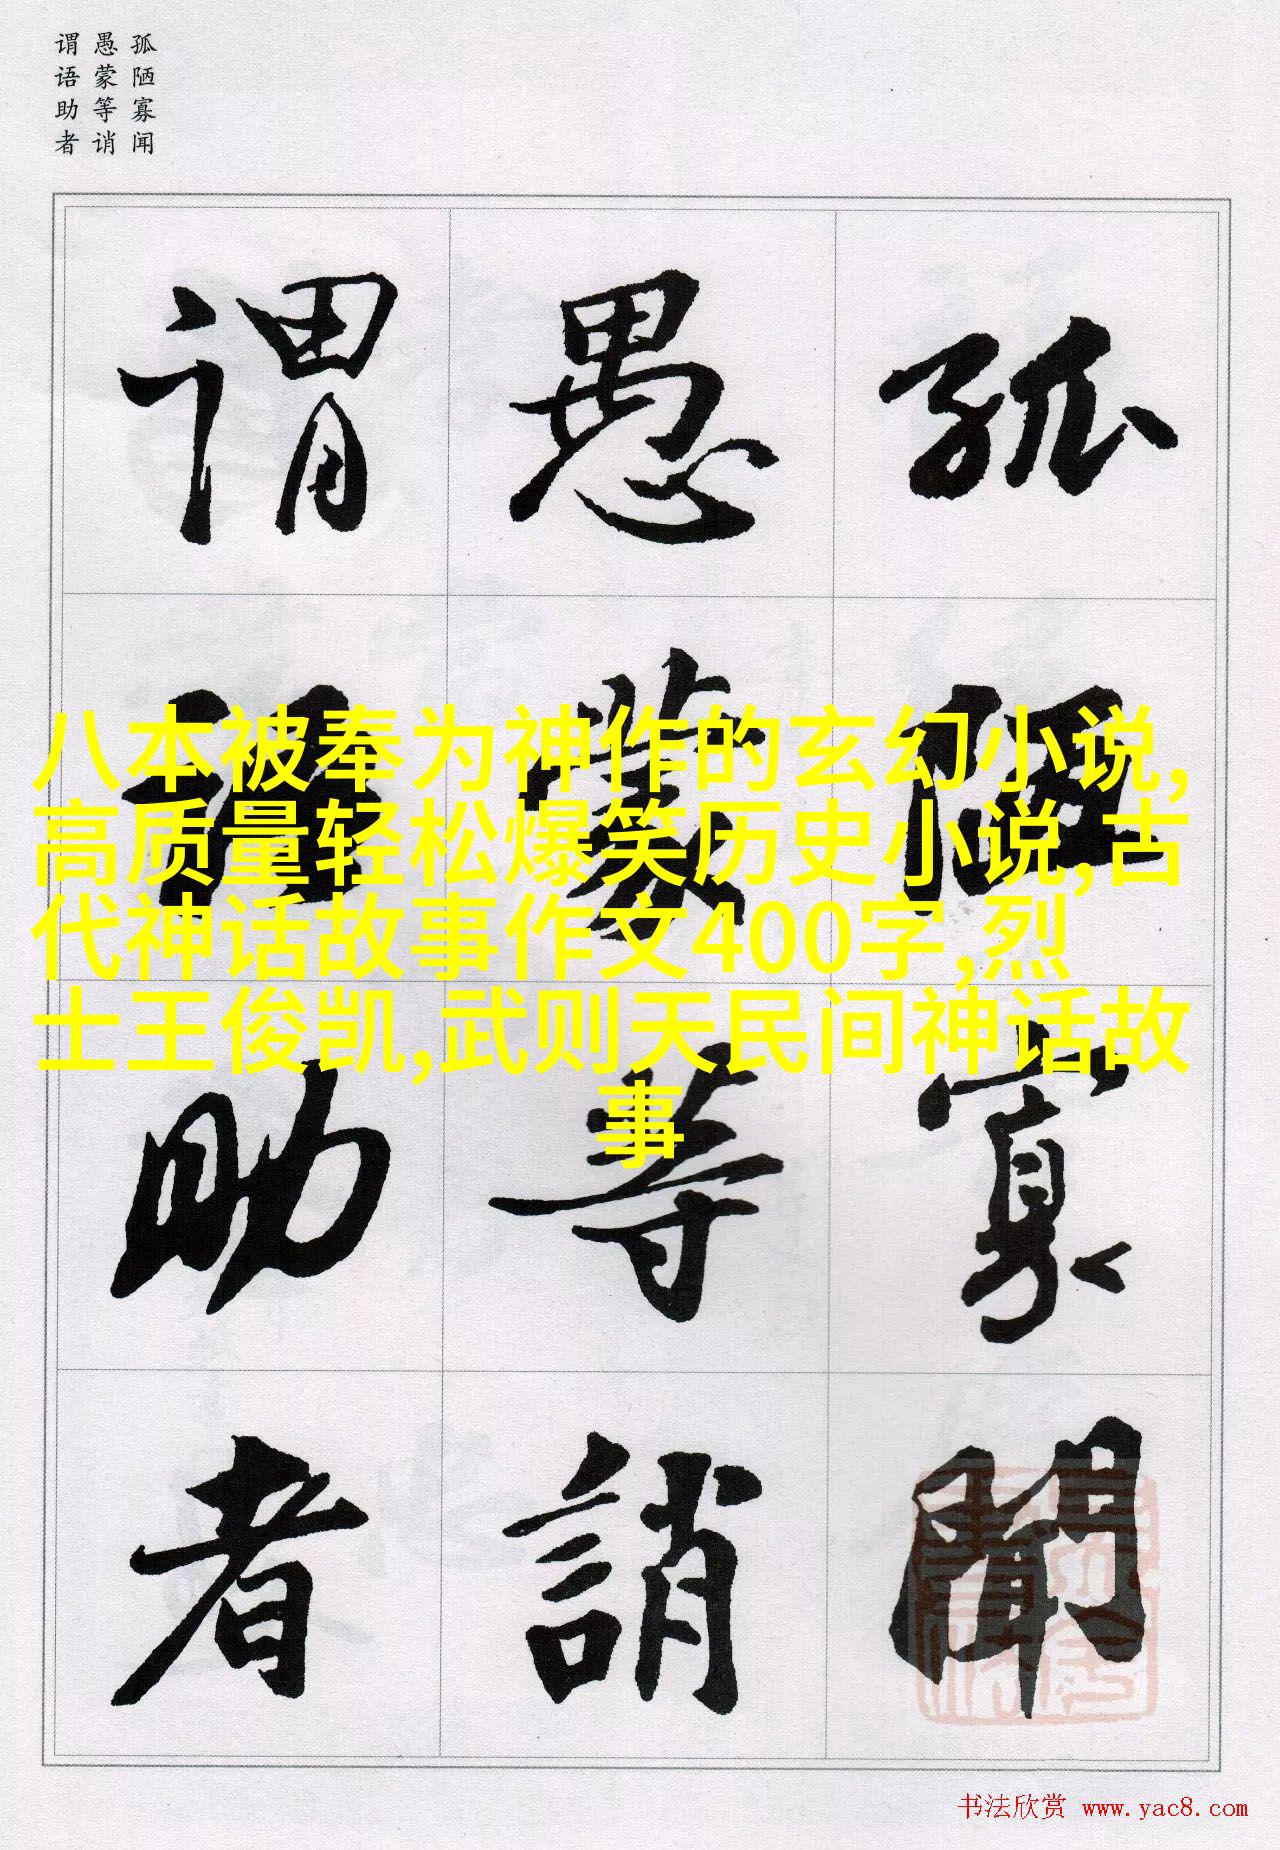 孤陋寡闻
愚蒙等诮
谓语助者
孤陋寡聞
愚蒙等誚
谓语助者
八本被奉为神作的玄幻小说,
高质量轻松爆笑历史小说,古
代神话故事作文400字,烈
士王俊凯,武则天民间神话故
事
书法欣赏 www.yac8.com